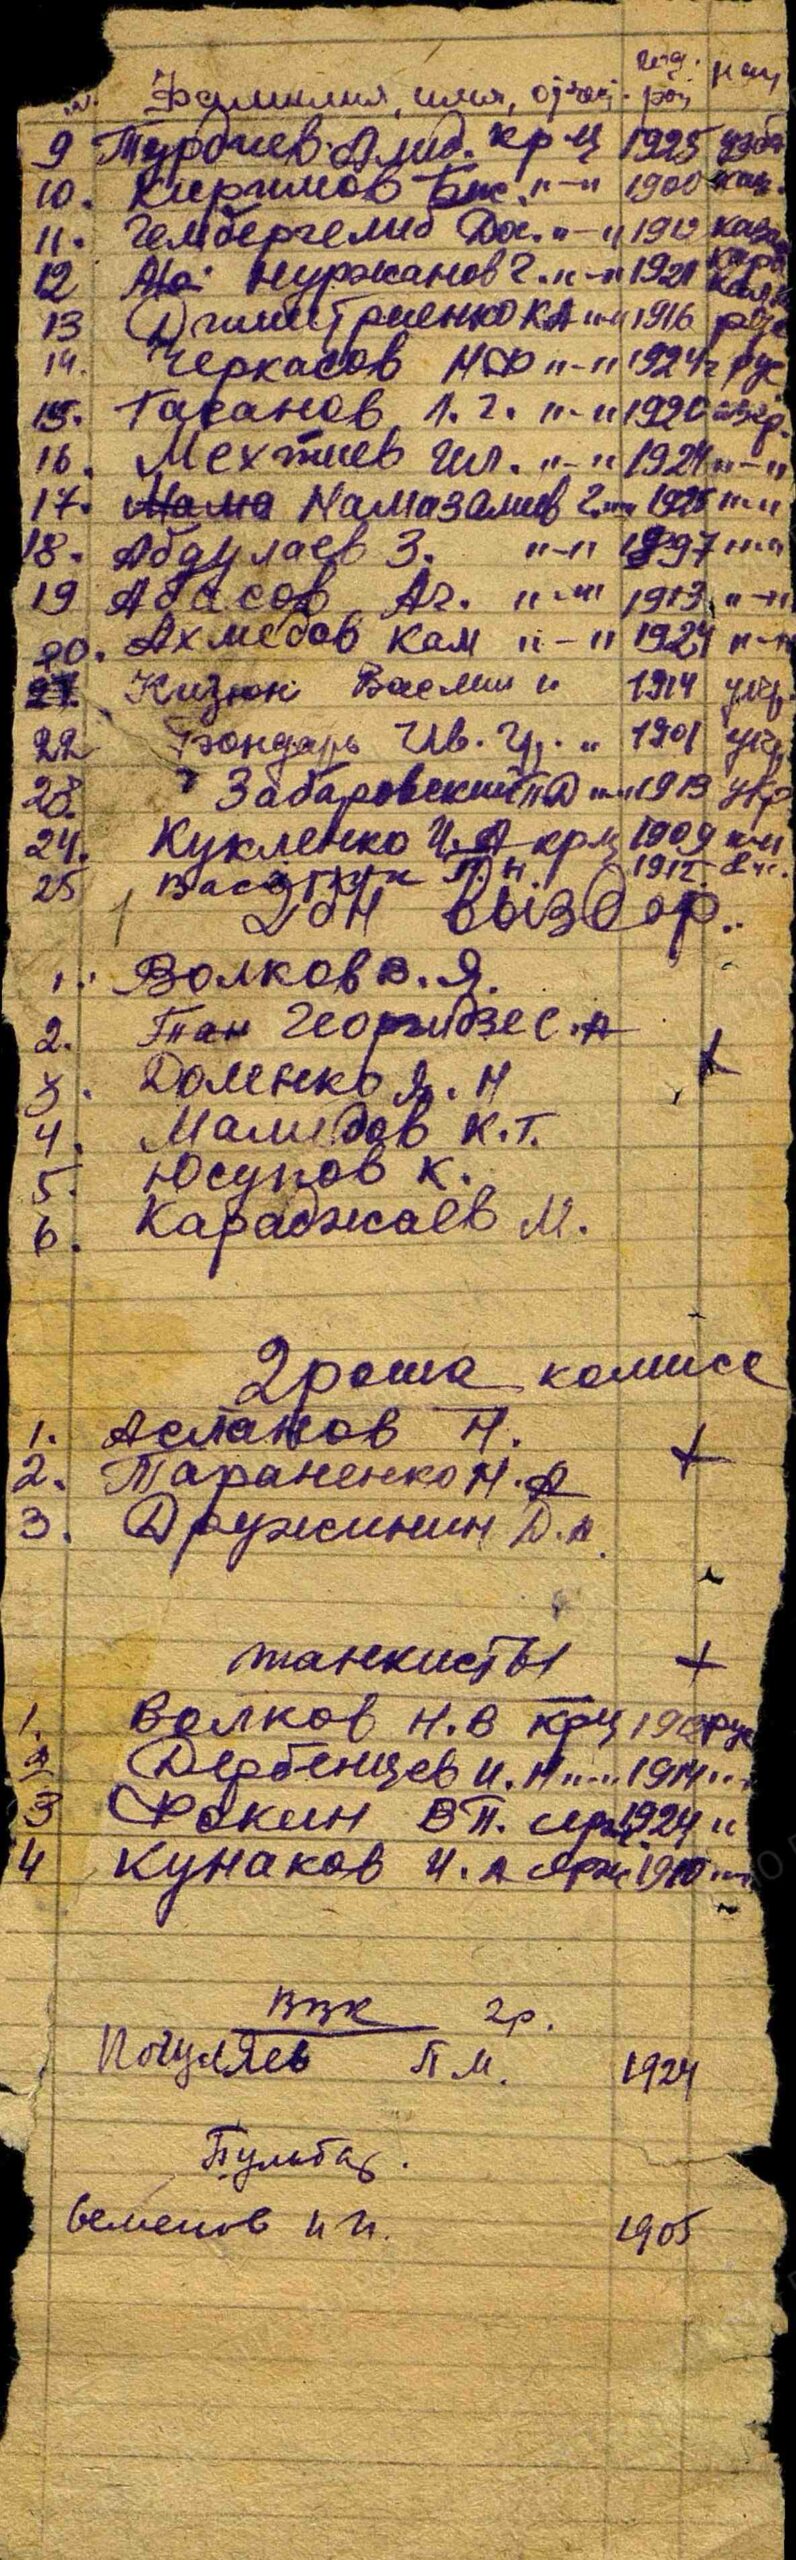 Фамилия, имя, отчес. год. рож нац
9 Турдиев Амид. кр-ц 1925 узб
10. Киримов Бис. "-" 1900 каз.
11. Чембергелиб Дос. "-" 1912 каза
12 Нуржанов Г. "-" 1921
13 Дмитриенко К А "-" 1916 рус
14. Черкасов Н Ф "-" 1924 г рус
15. Гасанов Л. Г. "-" 1920 азер.
16. Мехтиев Ил. "-" 1924 "-"
17. Мама Намазалиев Г. "-" 1925 "-"
18. Абдулаев З. "-" 1897 "-"
19 Абасов Аг. "-" 1913 "-"
20. Ахмедов Кам "-" 1924 "-"
21. Кизюк Васили " 1914 укр.
22 Бондарь Ив. Гр. " 1901 укр.
23. Забаровский П Д "-" 1913 укр
24. Кукленко И. А кр-ц 1909
25 П. Н. 1912
2 бН выздор.
1. Волков В. Я.
2. Георгидзе С. А
3. Доленко Я. Н
4. Мамедов К. Т.
5. Юсупов К.
6. Караджаев М.
2 рота комисс
1. Асланов Н.
2. Тараненко Н. А
3. Дружинин Д. А.
танкисты
1. Волков Н. В кр-ц рус
2 Дербенцев И. Н "-" 1914 "-"
3 Фокин В П. серж 1924 "
4 Кунаков И. А серж 1910 "-"
ВВК 2р.
Почуляев П М. 1924
Семенов И И. 1905